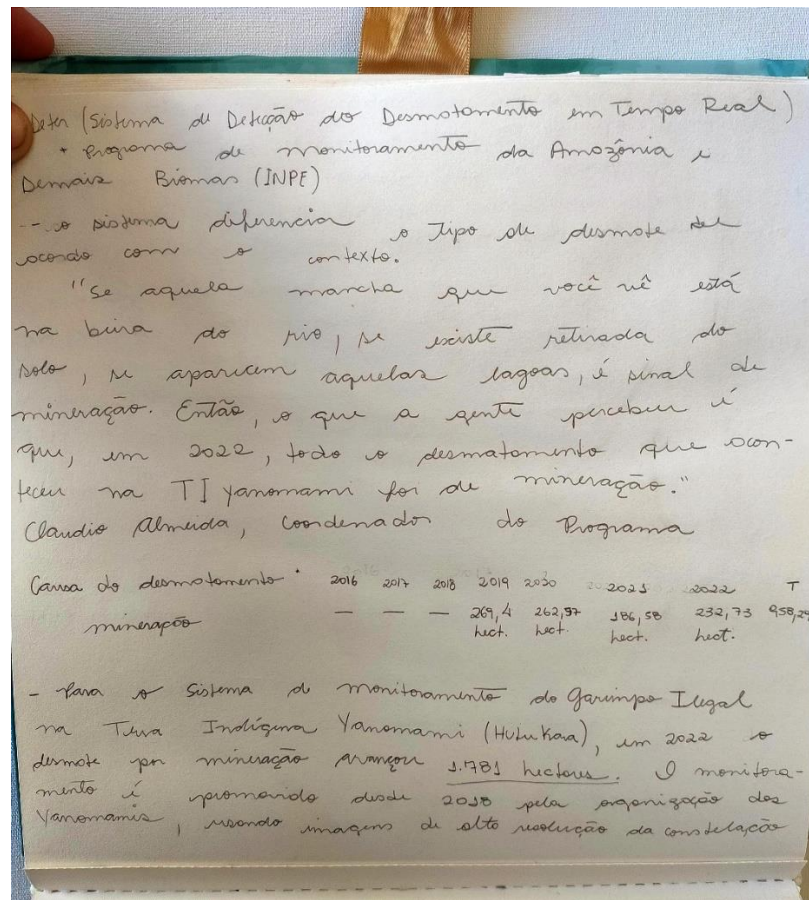 Deter (Sistema de Detecção do Desmatamento em Tempo Real)
* Programa de monitoramento da Amazônia e
Demais Biomas (INPE)
-- o sistema diferencia o tipo de desmate de
acordo com o contexto.
"Se aquela mancha que você vê está
na beira do rio, se existe retirada do
solo, se aparecem aquelas lagoas, é sinal de
mineração. Então, o que a gente percebeu é
que, em 2022, todo o desmatamento que acon-
teceu na TI Yanomami foi de mineração."
Claudio Almeida, coordenador do Programa
Causa do desmatamento * 2016 2017 2018 2019 2020 2021 2022 T
mineração — — — 269,4 262,97 186,58 232,73 958,29
hect. hect. hect. hect.
- Para o Sistema de monitoramento do Garimpo Ilegal
na Terra Indígena Yanomami (Hutukara), em 2022 o
desmate por mineração avançou 1.781 hectares. O monitora-
mento é promovido desde 2018 pela organização dos
Yanomamis, usando imagens de alta resolução da constelação